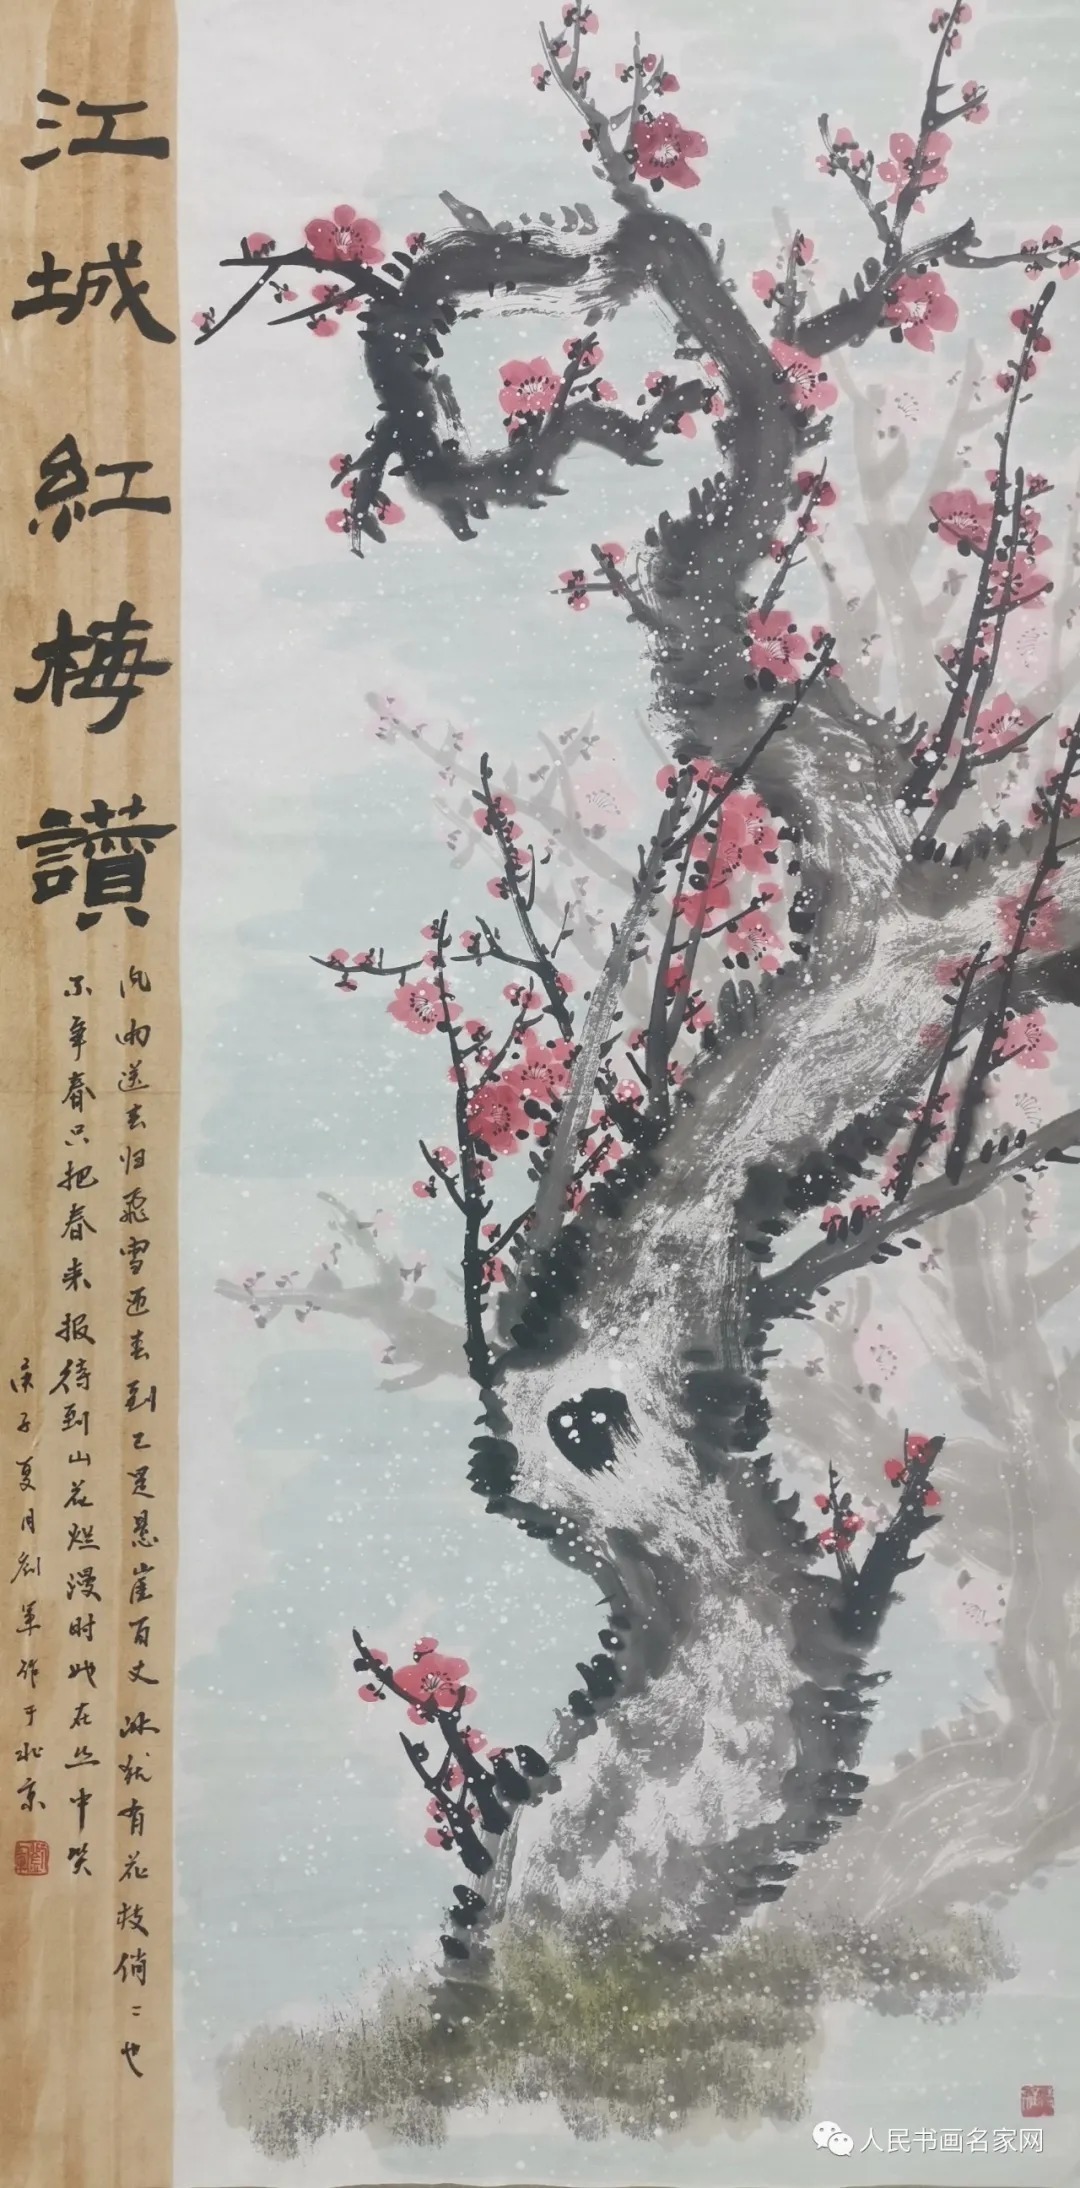 江城紅梅讚
风雨送春归飛雪迎春到已是悬崖百丈冰犹有花枝俏〻也
不争春只把春来报待到山花烂漫时她在丛中笑
庚子夏月刘军作于北京
人民书画名家网